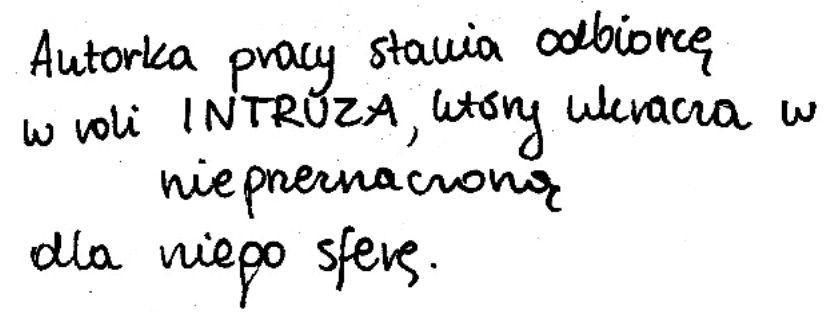 Autorka pracy stawia odbiorcę
w roli INTRUZA, który wkracza w
nieprzeznaczoną
dla niego sferę.